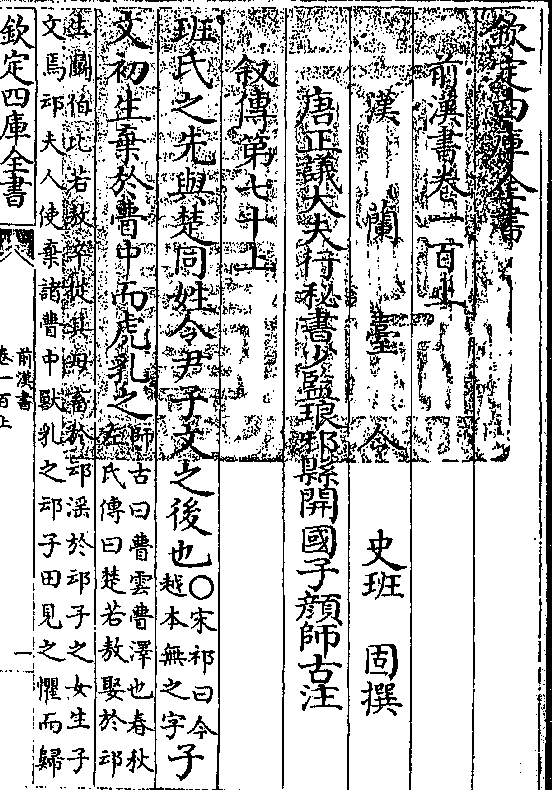 欽定四庫全書
前漢書卷一百上
漢蘭臺令史班固撰
唐正議大夫行秘書少監琅邪縣開國子顔師古注
叙傳第七十上
班氏之先與楚同姓令尹子文之後也〇宋祁曰今越本無之字子
文初生棄於瞢中而虎乳之師古曰瞢雲瞢澤也春秋左氏傳曰楚若敖娶於䢵
生鬭伯比若敖卒從其母畜於䢵淫於䢵子之女生子
文焉䢵夫人使棄諸瞢中獸乳之䢵子田見之懼而歸
欽定四庫全書
前漢書
卷一百上
一